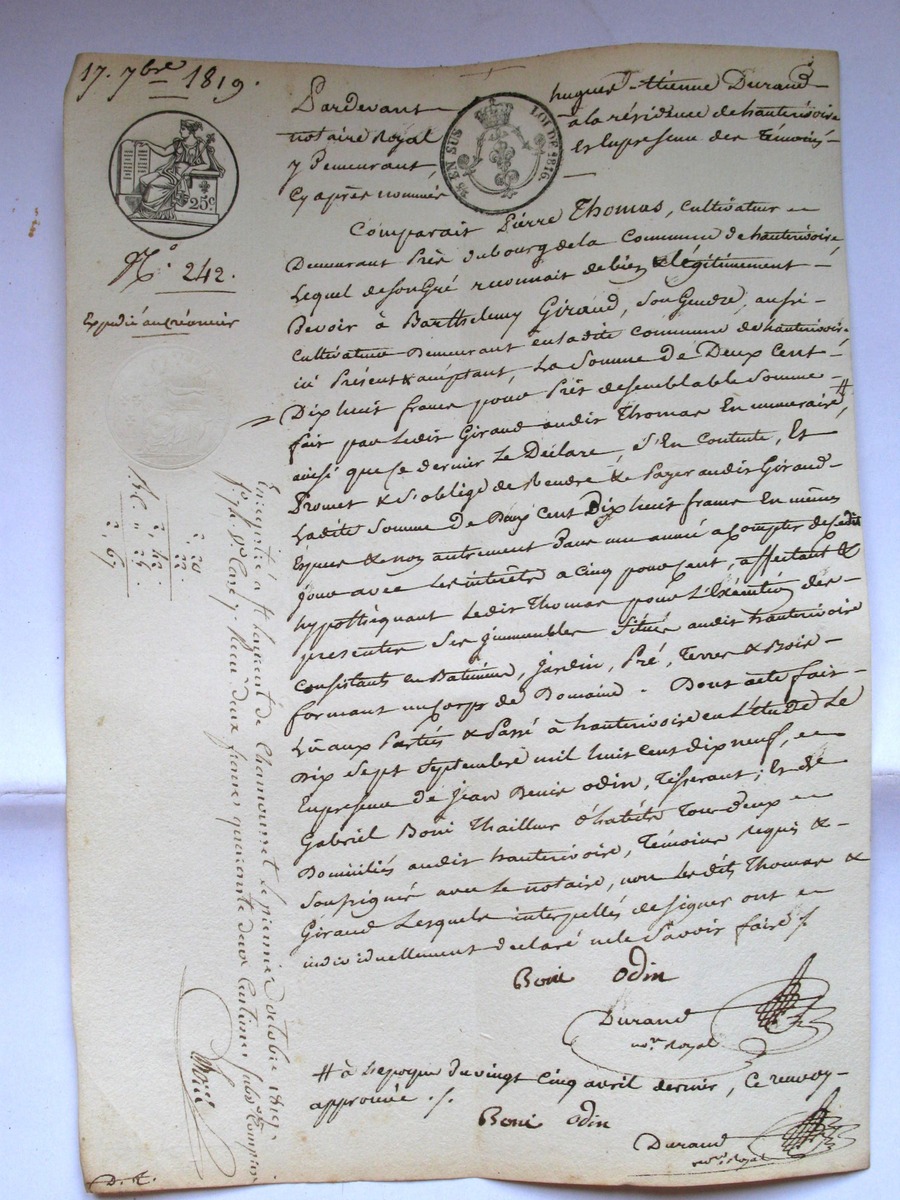 17. 7bre 1819.
Pardevant hugues Etienne Durand
notaire Royal à la résidence de hauterivoire
y Demeurant, En presence des Témoins
Cy après nommés
25 EN SUS LOI DE 1816.
25c
N.o 242.
Expedié au créancier
Comparait Pierre Thomas, cultivateur
Demeurant Près du bourg de la Commune de hauterivoire,
Lequel de son Gré reconnait de bien & légitimement
Devoir à Barthelemy Giraud, son Gendre, aussi
cultivateur Demeurant en ladite Commune de hauterivoire
ici Présent & acceptant, La Somme de Deux Cent
Dix huit francs pour Prêt de semblable Somme
fait par Ledit Giraud audit Thomas En numeraire #
ainsi que ce dernier Le Déclare, s'En Contente, Et
Promet & S'oblige de Rendre & Payer audit Giraud
Ladite Somme de Deux Cent Dix huit francs En mêmes
Espèces & non autrement Dans une année a Compter de cedit
jour avec Les intérêts a Cinq pour Cent, affectant &
hypothéquant Ledit Thomas pour L'Exécution des
presentes Ses jmmeubles Situés audit hauterivoire
Consistants en Batiments, Jardin, Pré, Terres & Bois
formant un Corps de Domaine. Dont acte fait
Lû aux Parties & Passé à hauterivoire en L'étude Le
Dix Sept Septembre mil huit cent dix neuf, en
Enpresence de Jean Denis Odin, Tisserant; Et de
Gabriel Boni Thailleur d'habits Tous deux
Domiciliés audit hauterivoire, Témoins requis &
Soussignés avec Le notaire, non Les dits Thomas &
Giraud Lesquels interpellés de signer ont
individuellement déclaré ne le Savoir faire ./.
Boni Odin
Durand
nore. Royal
# à L'epoque du vingt cinq avril dernier, Ce renvoy
approuvé ./.
Boni Odin
Durand
nore. Royal
Enregistré à St Laurent de Chamousset le premier octobre 1819.
Reçu deux francs quarante deux centimes
2, 20
22
2, 42
25
2, 67